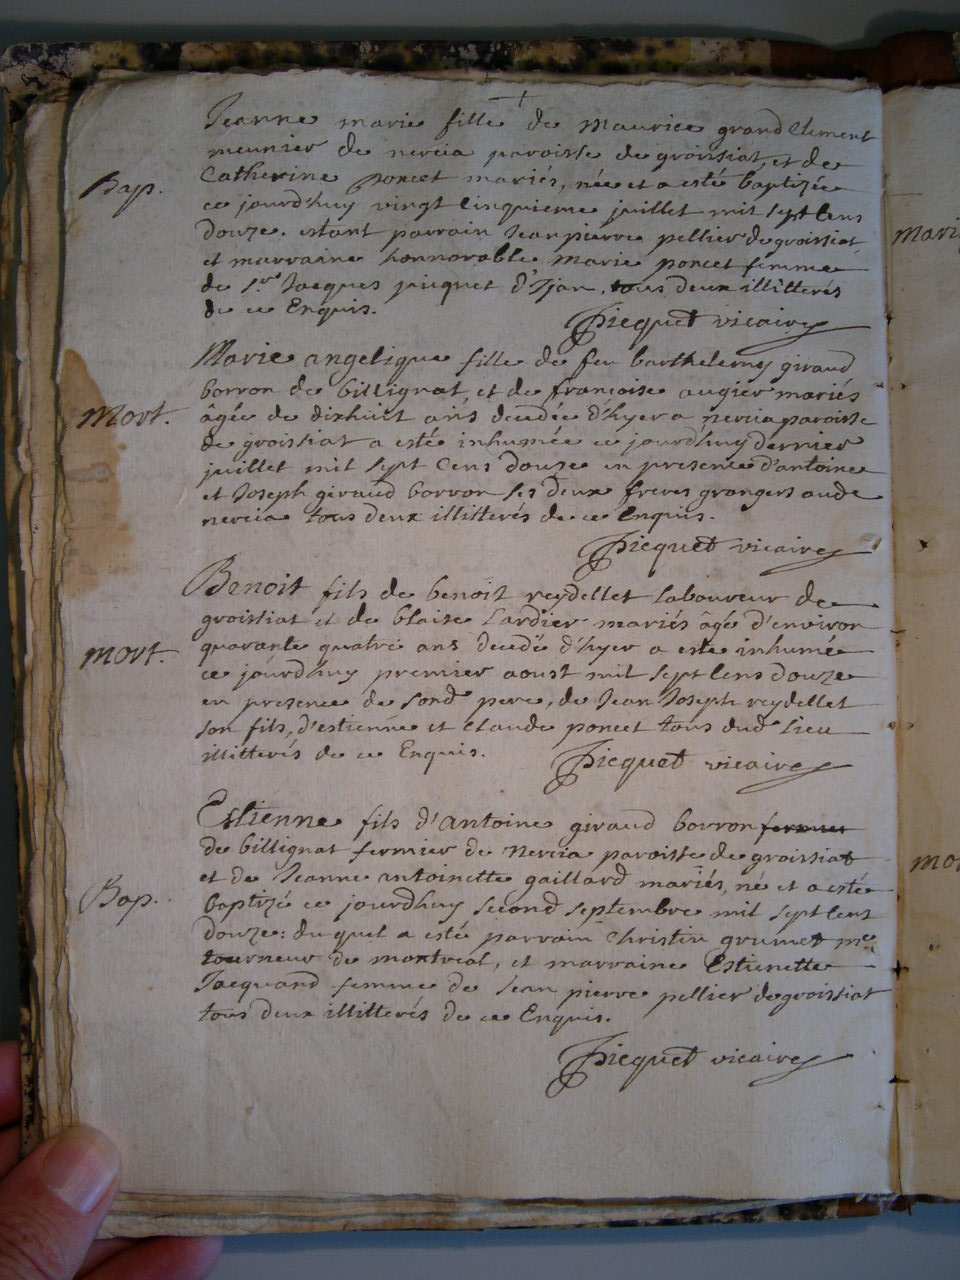 Jeanne marie fille de Maurice grand Clement
meunier de nercia paroisse de groissiat, et de
Bap.
Catherine poncet mariés, née et a esté baptizée
ce jourd'huy vingt cinquieme juillet mil sept cens
douze. estant parrain Jean pierre pellier de groissiat
et marraine honnorable marie poncet femme
de Sr. Jacques d'Ijan, tous deux illitterés
de ce Enquis.
Picquet vicaire
Marie angelique fille de feu barthelemy giraud
borron de billignat, et de françoise augier mariés
Mort.
âgée de dixhuit ans decedée d'hyer a nercia paroisse
de groissiat a esté inhumée ce jourd'huy dernier
juillet mil sept Cens douze en presence d'antoine
et Joseph giraud borron ses deux freres grangers aude
nercia tous deux illitterés de ce Enquis.
Picquet vicaire
Benoit fils de benoit reydellet laboureur de
groissiat et de blaise Lardier mariés âgé d'environ
mort.
quarante quatre ans decedé d'hyer a esté inhumé
ce jourd'huy premier aoust mil sept Cens douze
en presence de sond pere, de Jean Joseph reydellet
son fils, d'estienne et Claude poncet tous dud lieu
illitterés de ce Enquis.
Picquet vicaire
Estienne fils d'antoine giraud borron fermier
de billignat fermier de Nercia paroisse de groissiat
et de Jeanne antoinette gaillard mariés, né et a esté
Bap.
baptizé ce jourd'huy second septembre mil sept cens
douze: duquel a esté parrain Christin grumet me
tourneur de montreal, et marraine Estienette
Jacquand femme de Jean pierre pellier de groissiat
tous deux illitterés de ce Enquis.
Picquet vicaire